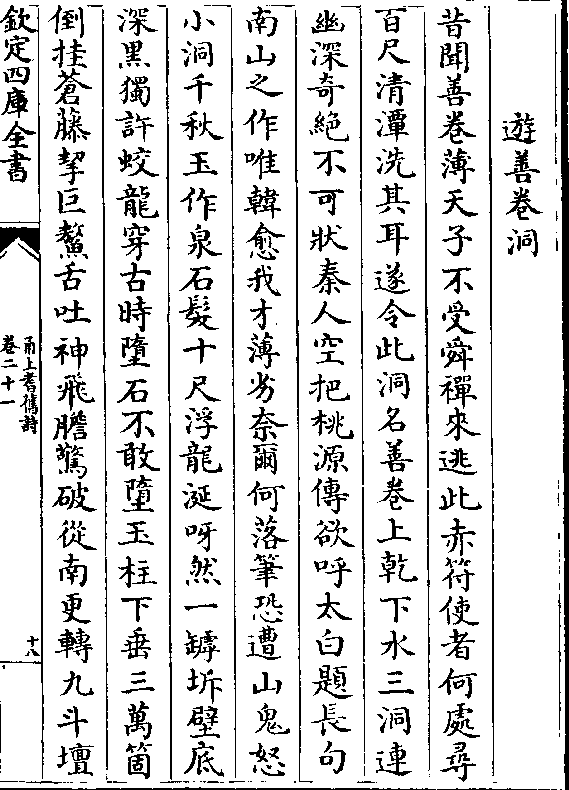 遊善卷洞
昔聞善卷薄天子不受舜禪來逃此赤符使者何處尋
百尺清潭洗其耳遂令此洞名善卷上乾下水三洞連
幽深奇絕不可狀秦人空把桃源傳欲呼太白題長句
南山之作唯韓愈我才薄劣奈爾何落筆恐遭山鬼怒
小洞千秋玉作泉石髮十尺浮龍涎呀然一罅坼壁底
深黑獨許蛟龍穿古時墮石不敢墮玉柱下垂三萬箇
倒挂蒼藤挈巨鰲舌吐神飛膽驚破從南更轉九斗壇
欽定四庫全書
甬上耆舊詩
卷二十一
十八